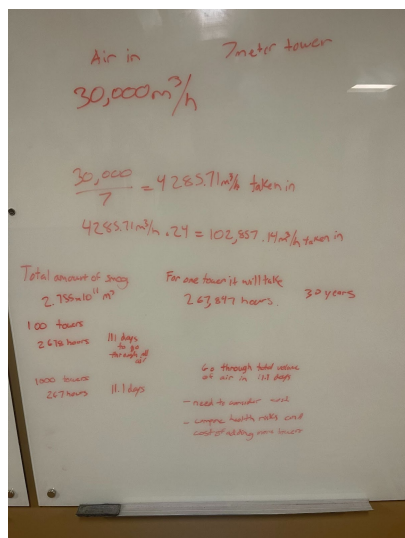 Air in
7meter tower
30,000m³/h
30,000 / 7 = 4285.71m³/h taken in
4285.71m³/h . 24 = 102,857.14m³/h taken in
Total amount of smog
2.755x10¹¹ m³
For one tower it will take
267,847 hours.
30 years
100 towers
2678 hours
111 days
to go
through all
air
1000 towers
267 hours
11.1 days
Go through total volume
of air in 11.1 days
- need to consider
- compare health risks and
cost of adding more towers